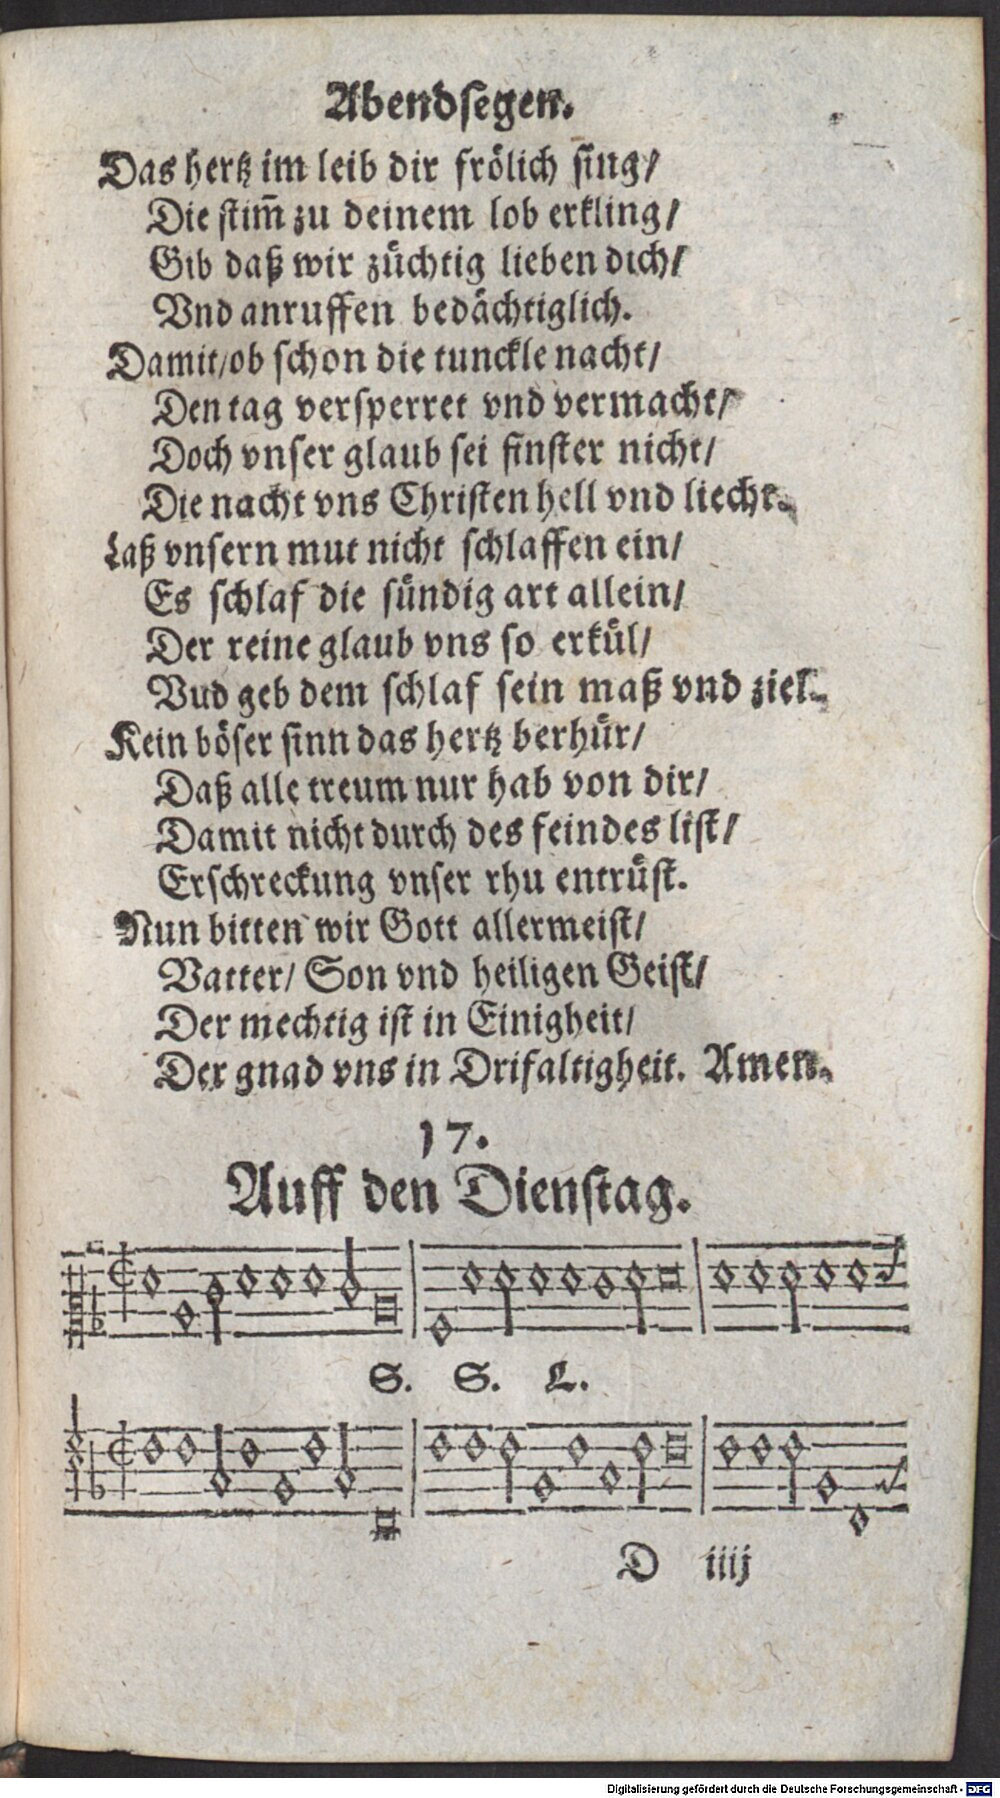 Abendsegen.
Das hertz im leib dir frölich sing/
Die stim̃ zu deinem lob erkling/
Gib daß wir züchtig lieben dich/
Vnd anruffen bedächtiglich.
Damit/ob schon die tunckle nacht/
Den tag versperret vnd vermacht/
Doch vnser glaub sei finster nicht/
Die nacht vns Christen hell vnd liecht.
Laß vnsern mut nicht schlaffen ein/
Es schlaf die sündig art allein/
Der reine glaub vns so erkül/
Vud geb dem schlaf sein maß vnd ziel.
Kein böser sinn das hertz berhür/
Daß alle treum nur hab von dir/
Damit nicht durch des feindes list/
Erschreckung vnser rhu entrüst.
Nun bitten wir Gott allermeist/
Vatter/ Son vnd heiligen Geist/
Der mechtig ist in Einigheit/
Der gnad vns in Drifaltigheit. Amen.
17.
Auff den Dienstag.
S. S. L.
D iiij
Digitalisierung gefördert durch die Deutsche Forschungsgemeinschaft - DFG